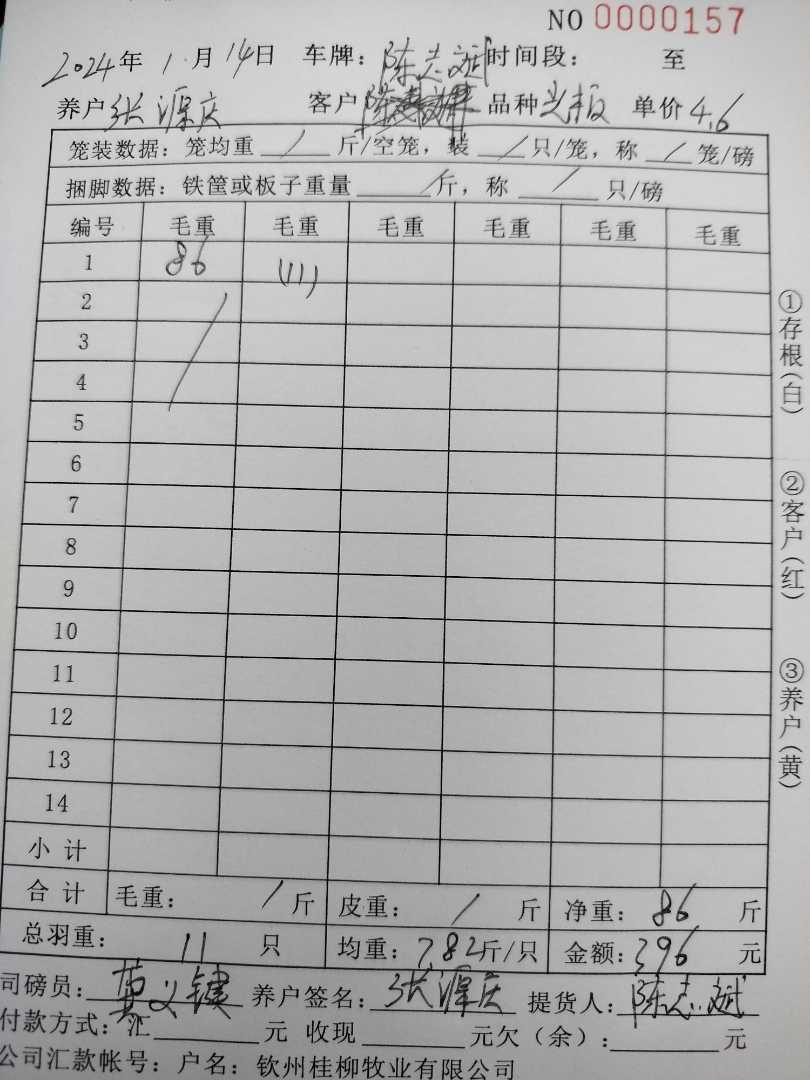 NO 0000157
2024年 1月14日 车牌：陈志斌 时间段： 至
养户 张源庆 客户 品种 单价 4.6
笼装数据：笼均重 / 斤/空笼，装 / 只/笼，称 / 笼/磅
捆脚数据：铁筐或板子重量 / 斤，称 / 只/磅
编号 毛重 毛重 毛重 毛重 毛重 毛重
1 86 (11)
2
3
4
5
6
7
8
9
10
11
12
13
14
小计
合计 毛重： / 斤 皮重： / 斤 净重：86 斤
总羽重： 11 只 均重：7.82斤/只 金额：396 元
司磅员：莫义键 养户签名：张源庆 提货人：陈志斌
付款方式：汇 元 收现 元欠（余）： 元
公司汇款帐号：户名：钦州桂柳牧业有限公司
①存根(白)
②客户(红)
③养户(黄)